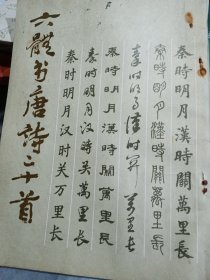 秦時明月漢時關萬里長
秦時明月漢時關萬里長
秦时明月漢时关萬里长
秦時明月漢時關萬里長
秦时明月汉时关萬里长
秦时明月汉时关万里长
六體书唐詩二十首